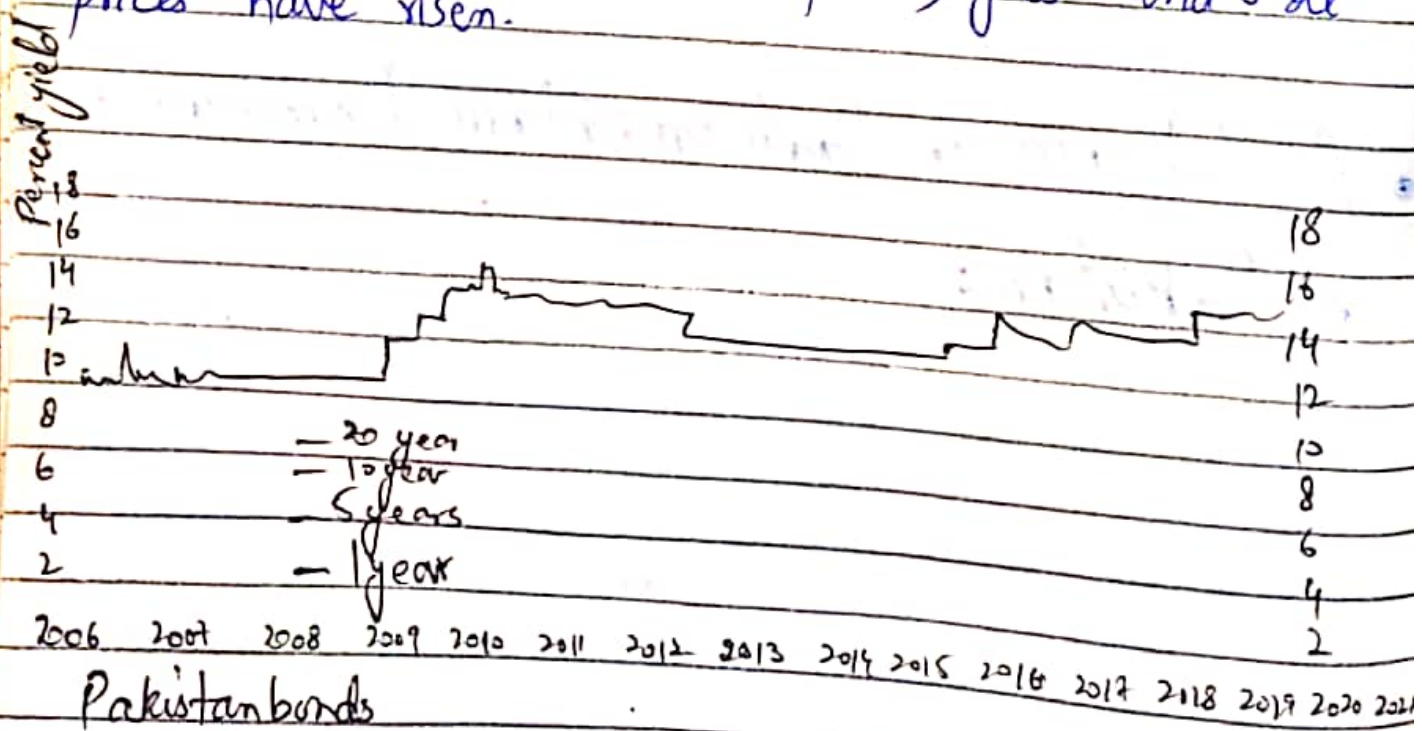 prices have risen.
Percent yield
18 18
16 16
14 14
12 12
10 10
8 8
6 6
4 4
2 2
— 20 year
— 10 year
— 5 years
— 1 year
2006 2007 2008 2009 2010 2011 2012 2013 2014 2015 2016 2017 2018 2019 2020 2021
Pakistan bonds